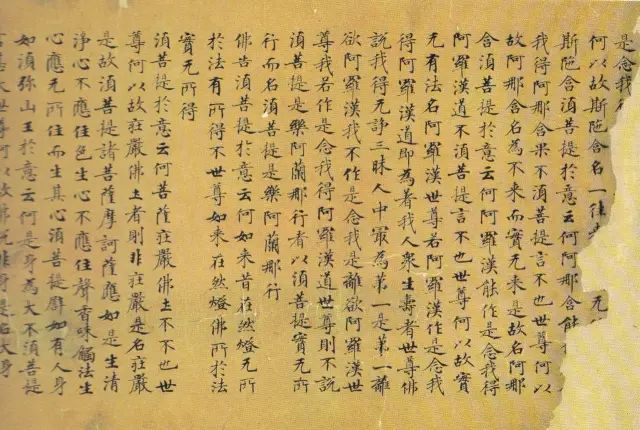 是念我
何以故斯陁含名一往 无
斯陁含須菩提於意云何阿那含能
我得阿那含果不須菩提言不也世尊何以
故阿那含名為不来而實无来是故名阿那
含須菩提於意云何阿羅漢能作是念我得
阿羅漢道不須菩提言不也世尊何以故實
无有法名阿羅漢世尊若阿羅漢作是念我
得阿羅漢道即為著我人衆生壽者世尊佛
說我得无諍三昧人中㝡為第一是第一離
欲阿羅漢我不作是念我是離欲阿羅漢世
尊我若作是念我得阿羅漢道世尊則不說
須菩提是樂阿蘭那行者以須菩提實无所
行而名須菩提是樂阿蘭那行
佛告須菩提於意云何如来昔在然燈所
於法有所得不世尊如来在然燈佛所於法
實无所得
須菩提於意云何菩薩莊嚴佛土不不也世
尊何以故莊嚴佛土者則非莊嚴是名莊嚴
是故須菩提諸菩薩摩訶薩應如是生清
淨心不應住色生心不應住聲香味觸法生
心應无所住而生其心須菩提譬如有人身
如須弥山王於意云何是身為大不須菩提
言甚大世尊何以故佛說非身是名大身